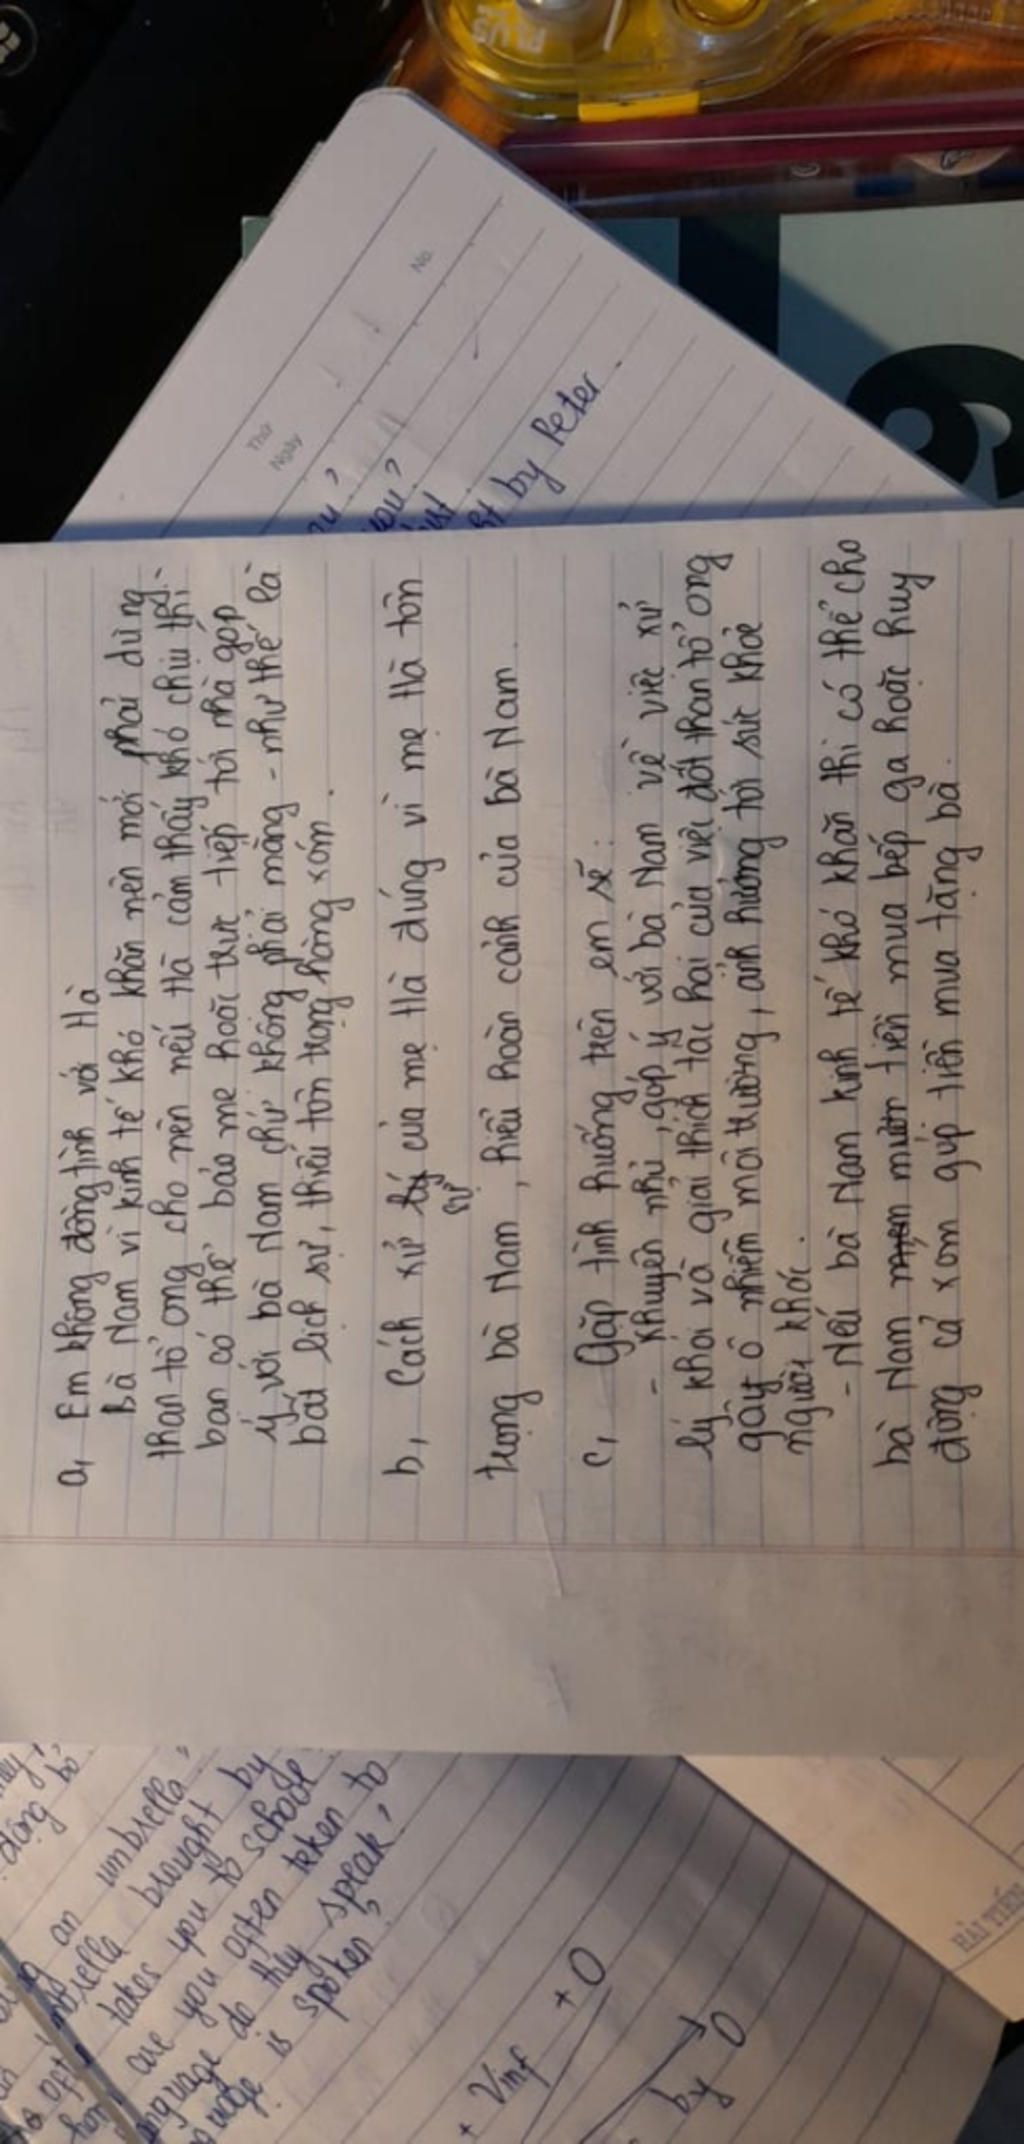 a, Em không đồng tình với Hà
Bà Nam vì kinh tế khó khăn nên mới phải dùng
than tổ ong cho nên nếu Hà cảm thấy khó chịu thì
bạn có thể bảo mẹ hoặc trực tiếp tới nhà góp
ý với bà Nam chứ không phải mắng - như thế là
bất lịch sự, thiếu tôn trọng hàng xóm.
b, Cách xử sự của mẹ Hà đúng vì mẹ Hà tôn
trọng bà Nam, hiểu hoàn cảnh của bà Nam.
c, Gặp tình huống trên em sẽ:
- Khuyên nhủ, góp ý với bà Nam về việc xử
lý khói và giải thích tác hại của việc đốt than tổ ong
gây ô nhiễm môi trường, ảnh hưởng tới sức khỏe
người khác.
- Nếu bà Nam kinh tế khó khăn thì có thể cho
bà Nam mượn tiền mua bếp ga hoặc huy
động cả xóm góp tiền mua tặng bà.
Thứ
Ngày
No.
you?
by Peter.
PLUS
động bỏ
an umbrella
umbrella brought by
takes you to school
are you often taken to
language do they speak?
is spoken?
+ Vinf + O
by O
HẢI TIẾN